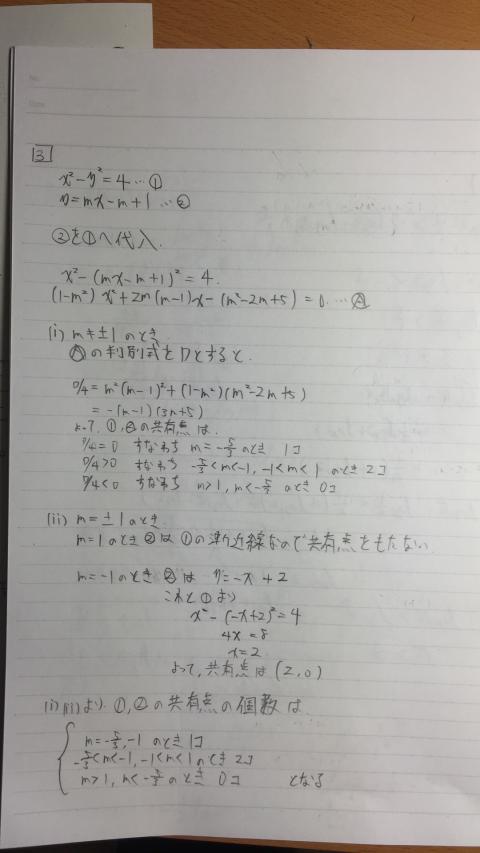 No.
Date
3
x²-y²=4 … ①
y=mx-m+1 … ②
②を①へ代入.
x²-(mx-m+1)²=4.
(1-m²)x²+2m(m-1)x-(m²-2m+5)=0 … Ⓐ
(i) m≠±1のとき
Ⓐの判別式をDとすると.
D/4=m²(m-1)²+(1-m²)(m²-2m+5)
=-(m-1)(3m+5)
よって, ①,②の共有点は.
D/4=0 すなわち m=-5/3のとき 1コ
D/4>0 すなわち -5/3<m<-1, -1<m<1 のとき 2コ
D/4<0 すなわち m>1, m<-5/3 のとき 0コ
(ii) m=±1のとき
m=1のとき②は①の漸近線なので共有点をもたない
m=-1のとき②は y=-x+2
これと①より
x²-(-x+2)²=4
4x=8
x=2
よって, 共有点は(2,0)
(i)(ii)より. ①,②の共有点の個数は.
m=-5/3,-1 のとき 1コ
-5/3<m<-1, -1<m<1のとき 2コ
m>1, m<-5/3のとき 0コ となる